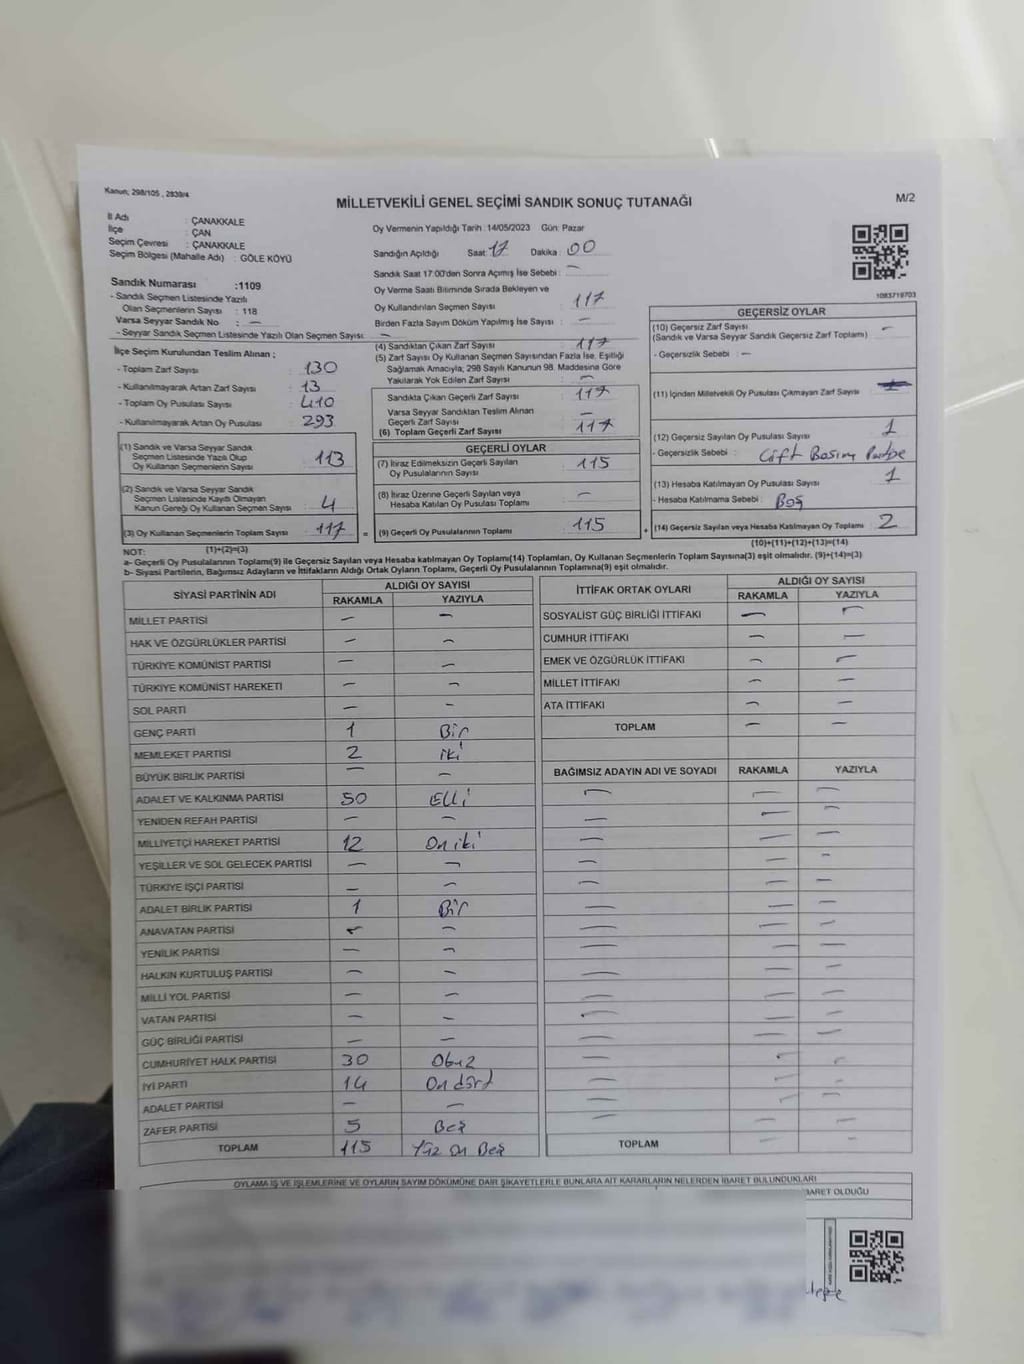 Kanun; 298/105 , 2839/4
MİLLETVEKİLİ GENEL SEÇİMİ SANDIK SONUÇ TUTANAĞI
M/2
İl Adı : ÇANAKKALE
İlçe : ÇAN
Seçim Çevresi : ÇANAKKALE
Seçim Bölgesi (Mahalle Adı) : GÖLE KÖYÜ
Sandık Numarası :1109
- Sandık Seçmen Listesinde Yazılı
Olan Seçmenlerin Sayısı : 118
Varsa Seyyar Sandık No : —
- Seyyar Sandık Seçmen Listesinde Yazılı Olan Seçmen Sayısı: —
Oy Vermenin Yapıldığı Tarih :14/05/2023 Gün: Pazar
Sandığın Açıldığı Saat: 17 Dakika : 00
Sandık Saat 17:00'den Sonra Açımış İse Sebebi : —
Oy Verme Saati Bitiminde Sırada Bekleyen ve
Oy Kullandırılan Seçmen Sayısı : 117
Birden Fazla Sayım Döküm Yapılmış İse Sayısı : —
1083719703
İlçe Seçim Kurulundan Teslim Alınan ;
- Toplam Zarf Sayısı : 130
- Kullanılmayarak Artan Zarf Sayısı : 13
- Toplam Oy Pusulası Sayısı : 410
- Kullanılmayarak Artan Oy Pusulası : 293
(1) Sandık ve Varsa Seyyar Sandık
Seçmen Listesinde Yazılı Olup
Oy Kullanan Seçmenlerin Sayısı : 113
(2) Sandık ve Varsa Seyyar Sandık
Seçmen Listesinde Kayıtlı Olmayan
Kanun Gereği Oy Kullanan Seçmen Sayısı : 4
(3) Oy Kullanan Seçmenlerin Toplam Sayısı : 117
(1)+(2)=(3)
(4) Sandıktan Çıkan Zarf Sayısı : 117
(5) Zarf Sayısı Oy Kullanan Seçmen Sayısından Fazla İse, Eşitliği
Sağlamak Amacıyla; 298 Sayılı Kanunun 98. Maddesine Göre
Yakılarak Yok Edilen Zarf Sayısı : —
Sandıkta Çıkan Geçerli Zarf Sayısı : 117
Varsa Seyyar Sandıktan Teslim Alınan
Geçerli Zarf Sayısı : —
(6) Toplam Geçerli Zarf Sayısı : 117
GEÇERLİ OYLAR
(7) İtiraz Edilmeksizin Geçerli Sayılan
Oy Pusulalarının Sayısı : 115
(8) İtiraz Üzerine Geçerli Sayılan veya
Hesaba Katılan Oy Pusulası Toplamı : —
= (9) Geçerli Oy Pusulalarının Toplamı : 115
GEÇERSİZ OYLAR
(10) Geçersiz Zarf Sayısı : —
(Sandık ve Varsa Seyyar Sandık Geçersiz Zarf Toplamı)
- Geçersizlik Sebebi : —
(11) İçinden Milletvekili Oy Pusulası Çıkmayan Zarf Sayısı :
(12) Geçersiz Sayılan Oy Pusulası Sayısı : 1
- Geçersizlik Sebebi : Çift Basım
(13) Hesaba Katılmayan Oy Pusulası Sayısı : 1
- Hesaba Katılmama Sebebi : Boş
+ (14) Geçersiz Sayılan veya Hesaba Katılmayan Oy Toplamı : 2
(10)+(11)+(12)+(13)=(14)
NOT:
a- Geçerli Oy Pusulalarının Toplamı(9) ile Geçersiz Sayılan veya Hesaba katılmayan Oy Toplamı(14) Toplamları, Oy Kullanan Seçmenlerin Toplam Sayısına(3) eşit olmalıdır. (9)+(14)=(3)
b- Siyasi Partilerin, Bağımsız Adayların ve İttifakların Aldığı Ortak Oyların Toplamı, Geçerli Oy Pusulalarının Toplamına(9) eşit olmalıdır.
SİYASİ PARTİNİN ADI ALDIĞI OY SAYISI
RAKAMLA YAZIYLA
MİLLET PARTİSİ — —
HAK VE ÖZGÜRLÜKLER PARTİSİ — —
TÜRKİYE KOMÜNİST PARTİSİ — —
TÜRKİYE KOMÜNİST HAREKETİ — —
SOL PARTİ — —
GENÇ PARTİ 1 Bir
MEMLEKET PARTİSİ 2 iki
BÜYÜK BİRLİK PARTİSİ — —
ADALET VE KALKINMA PARTİSİ 50 Elli
YENİDEN REFAH PARTİSİ — —
MİLLİYETÇİ HAREKET PARTİSİ 12 On iki
YEŞİLLER VE SOL GELECEK PARTİSİ — —
TÜRKİYE İŞÇİ PARTİSİ — —
ADALET BİRLİK PARTİSİ 1 Bir
ANAVATAN PARTİSİ — —
YENİLİK PARTİSİ — —
HALKIN KURTULUŞ PARTİSİ — —
MİLLİ YOL PARTİSİ — —
VATAN PARTİSİ — —
GÜÇ BİRLİĞİ PARTİSİ — —
CUMHURİYET HALK PARTİSİ 30 Otuz
İYİ PARTİ 14 On dört
ADALET PARTİSİ — —
ZAFER PARTİSİ 5 Beş
TOPLAM 115 Yüz On Beş
İTTİFAK ORTAK OYLARI ALDIĞI OY SAYISI
RAKAMLA YAZIYLA
SOSYALİST GÜÇ BİRLİĞİ İTTİFAKI — —
CUMHUR İTTİFAKI — —
EMEK VE ÖZGÜRLÜK İTTİFAKI — —
MİLLET İTTİFAKI — —
ATA İTTİFAKI — —
TOPLAM — —
BAĞIMSIZ ADAYIN ADI VE SOYADI RAKAMLA YAZIYLA
TOPLAM — —
OYLAMA İŞ VE İŞLEMLERİNE VE OYLARIN SAYIM DÖKÜMÜNE DAİR ŞİKAYETLERLE BUNLARA AİT KARARLARIN NELERDEN İBARET BULUNDUKLARI
BARET OLDUĞU